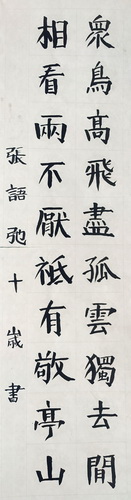 眾鳥高飛盡孤雲獨去閒
相看兩不厭祗有敬亭山
張語弛十歲書